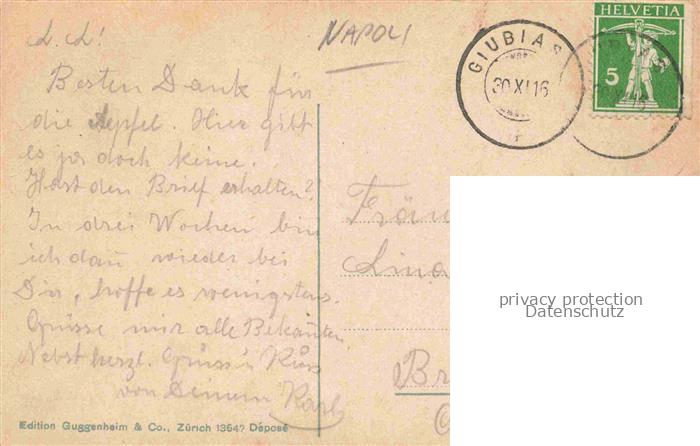 L. L!
Besten Dank für
die Aepfel. Hier gibt
es ja doch keine.
Hast den Brief erhalten?
In drei Wochen bin
ich dan̄ wieder bei
Dir, hoffe es wenigstens.
Grüsse mir alle Bekan̄ten.
Nebst herzl. Gruss u Kuss
von Deinem Karl
Edition Guggenheim & Co., Zürich 13547 Déposé
NAPOLI
GIUBIAS
30 XI 16
HELVETIA
5
Fräu
Lina
Br
privacy protection
Datenschutz